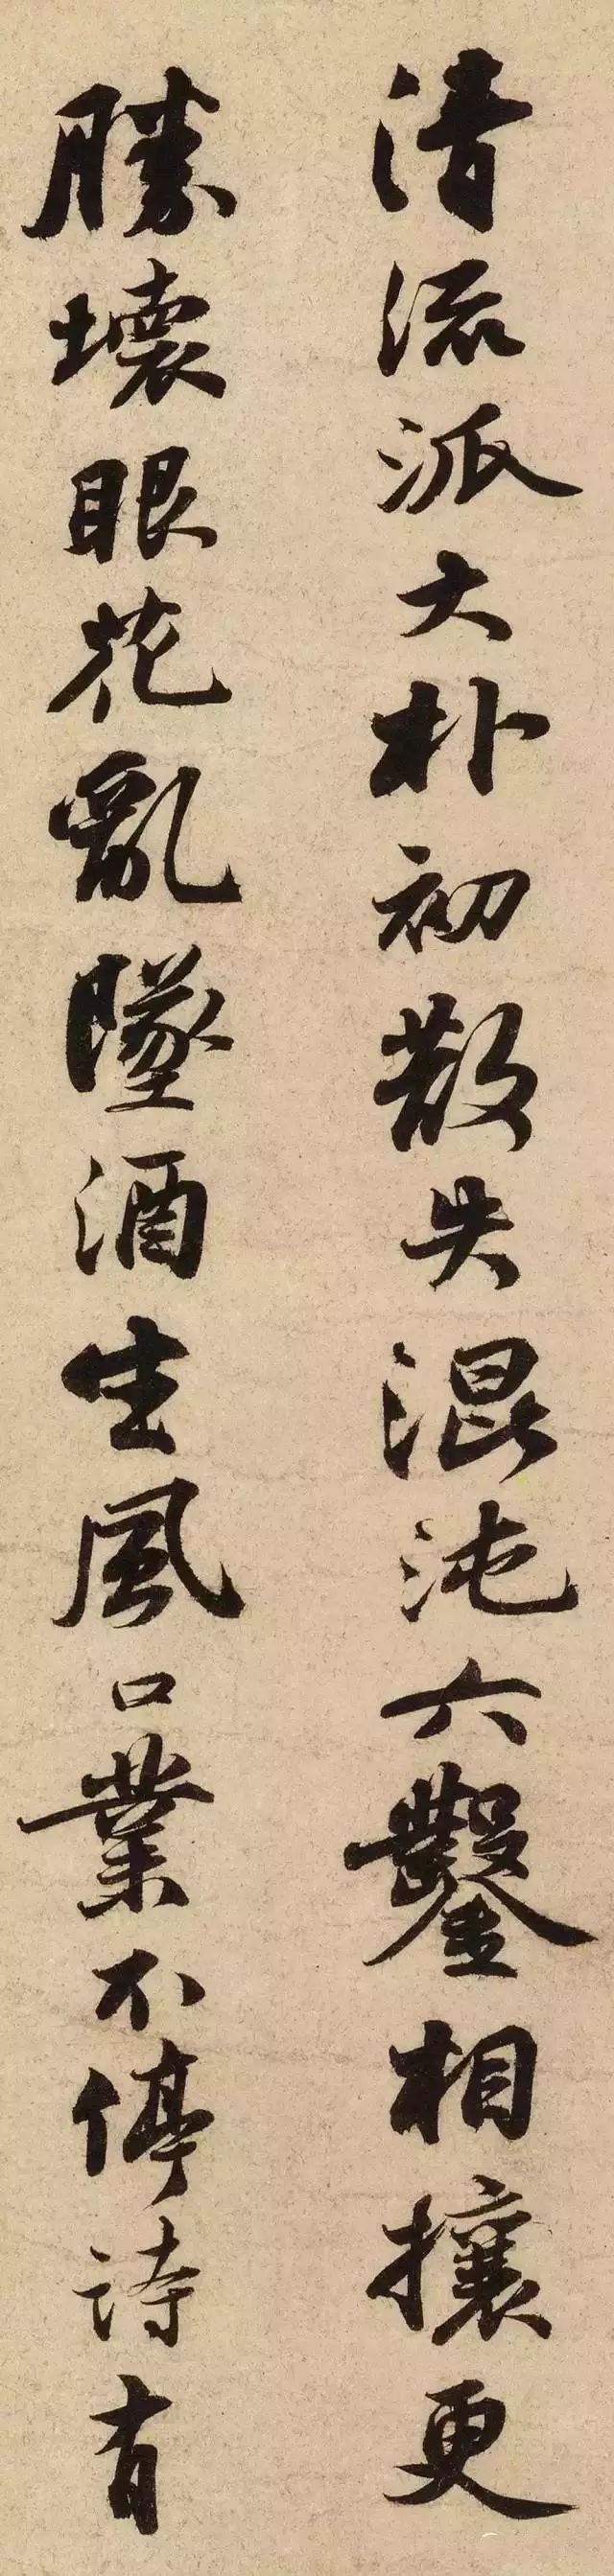 清流派大朴初散失混沌六鑿相攘更
勝壞眼花亂墜酒生風口業不停詩有